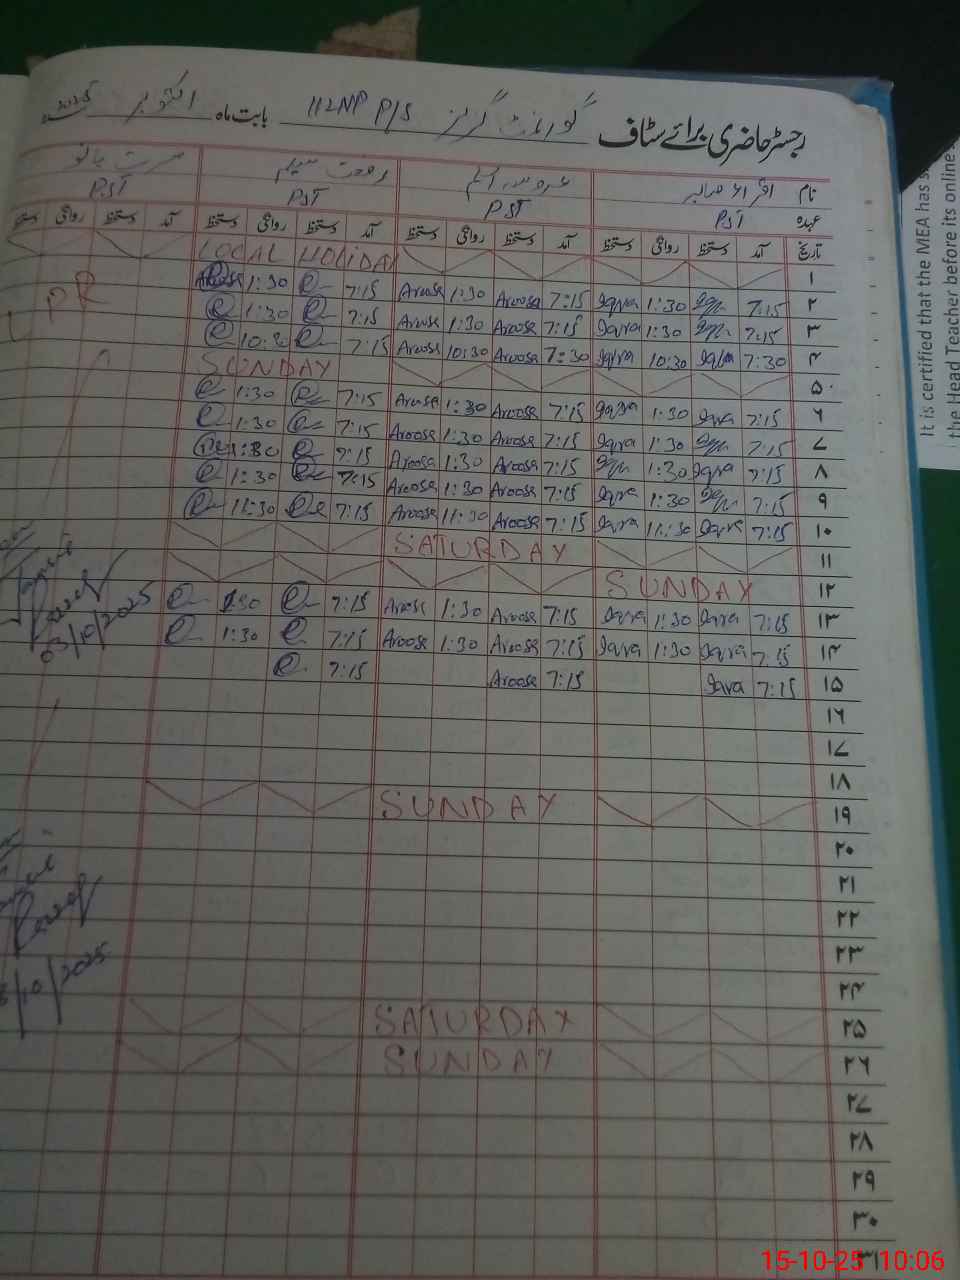 رجسٹر حاضری برائے سٹاف گورنمنٹ گرلز 112NP P/S بابت ماہ اکتوبر سنہ 2025
نام اقراء صابر عروسہ اسلم رفعت سلیم مسرت بانو
عہدہ PST PST PST PST
تاریخ آمد دستخط روانگی دستخط آمد دستخط روانگی دستخط آمد دستخط روانگی دستخط آمد دستخط روانگی دستخط
۱ LOCAL HOLIDAY
۲ 7:15 Iqra 1:30 Iqra 7:15 Aroosa 1:30 Aroosa 7:15 1:30
۳ 7:15 Iqra 1:30 Iqra 7:15 Aroosa 1:30 Aroosa 7:15 1:30
۴ 7:30 Iqra 10:30 Iqra 7:30 Aroosa 10:30 Aroosa 7:15 10:30
۵ SUNDAY
۶ 7:15 Iqra 1:30 Iqra 7:15 Aroosa 1:30 Aroosa 7:15 1:30
۷ 7:15 Iqra 1:30 Iqra 7:15 Aroosa 1:30 Aroosa 7:15 1:30
۸ 7:15 Iqra 1:30 Iqra 7:15 Aroosa 1:30 Aroosa 7:15 1:30
۹ 7:15 Iqra 1:30 Iqra 7:15 Aroosa 1:30 Aroosa 7:15 1:30
۱۰ 7:15 Iqra 11:30 Iqra 7:15 Aroosa 11:30 Aroosa 7:15 11:30
۱۱ SATURDAY
۱۲ SUNDAY
۱۳ 7:15 Iqra 1:30 Iqra 7:15 Aroosa 1:30 Aroosa 7:15 1:30
۱۴ 7:15 Iqra 1:30 Iqra 7:15 Aroosa 1:30 Aroosa 7:15 1:30
۱۵ 7:15 Iqra 7:15 Aroosa 7:15
۱۶
۱۷
۱۸
۱۹ SUNDAY
۲۰
۲۱
۲۲
۲۳
۲۴
۲۵ SATURDAY
۲۶ SUNDAY
۲۷
۲۸
۲۹
۳۰
۳۱
03/10/2025
/10/2025
It is certified that the MEA has
the Head Teacher before its online
15-10-25 10:06